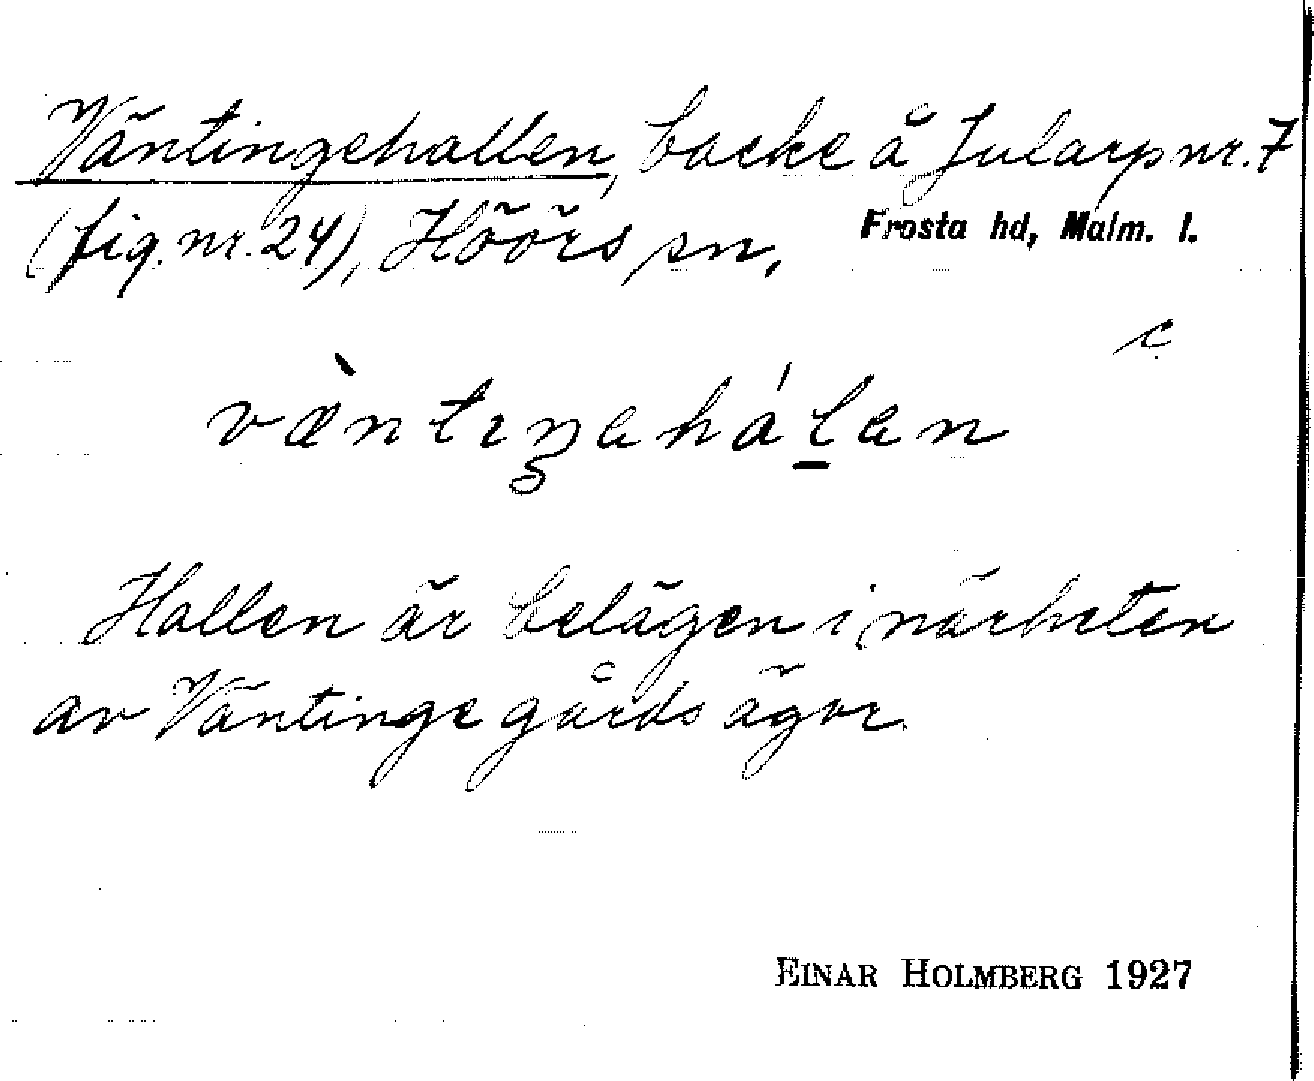 Väntingehallen, backe å Jularp nr. 7
(fig. nr. 24), Höörs sn, Frosta hd, Malm. l.
c
væ̀ntıŋahál̲an
Hallen är belägen i närheten
av Väntinge gårds ägor.
EINAR HOLMBERG 1927